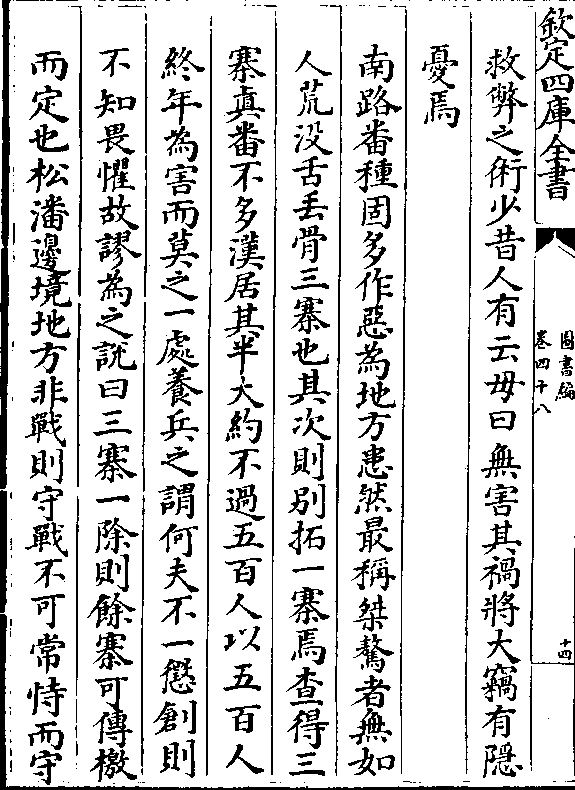 欽定四庫全書
圖書編
卷四十八
十四
救弊之術少昔人有云毋曰無害其禍將大竊有隱
憂焉
南路番種固多作惡為地方患然最稱桀驁者無如
人荒没舌丢骨三寨也其次則別拓一寨焉查得三
寨真番不多漢居其半大約不過五百人以五百人
終年為害而莫之一處養兵之謂何夫不一懲創則
不知畏懼故謬為之說曰三寨一除則餘寨可傳檄
而定也松潘邊境地方非戰則守戰不可常恃而守